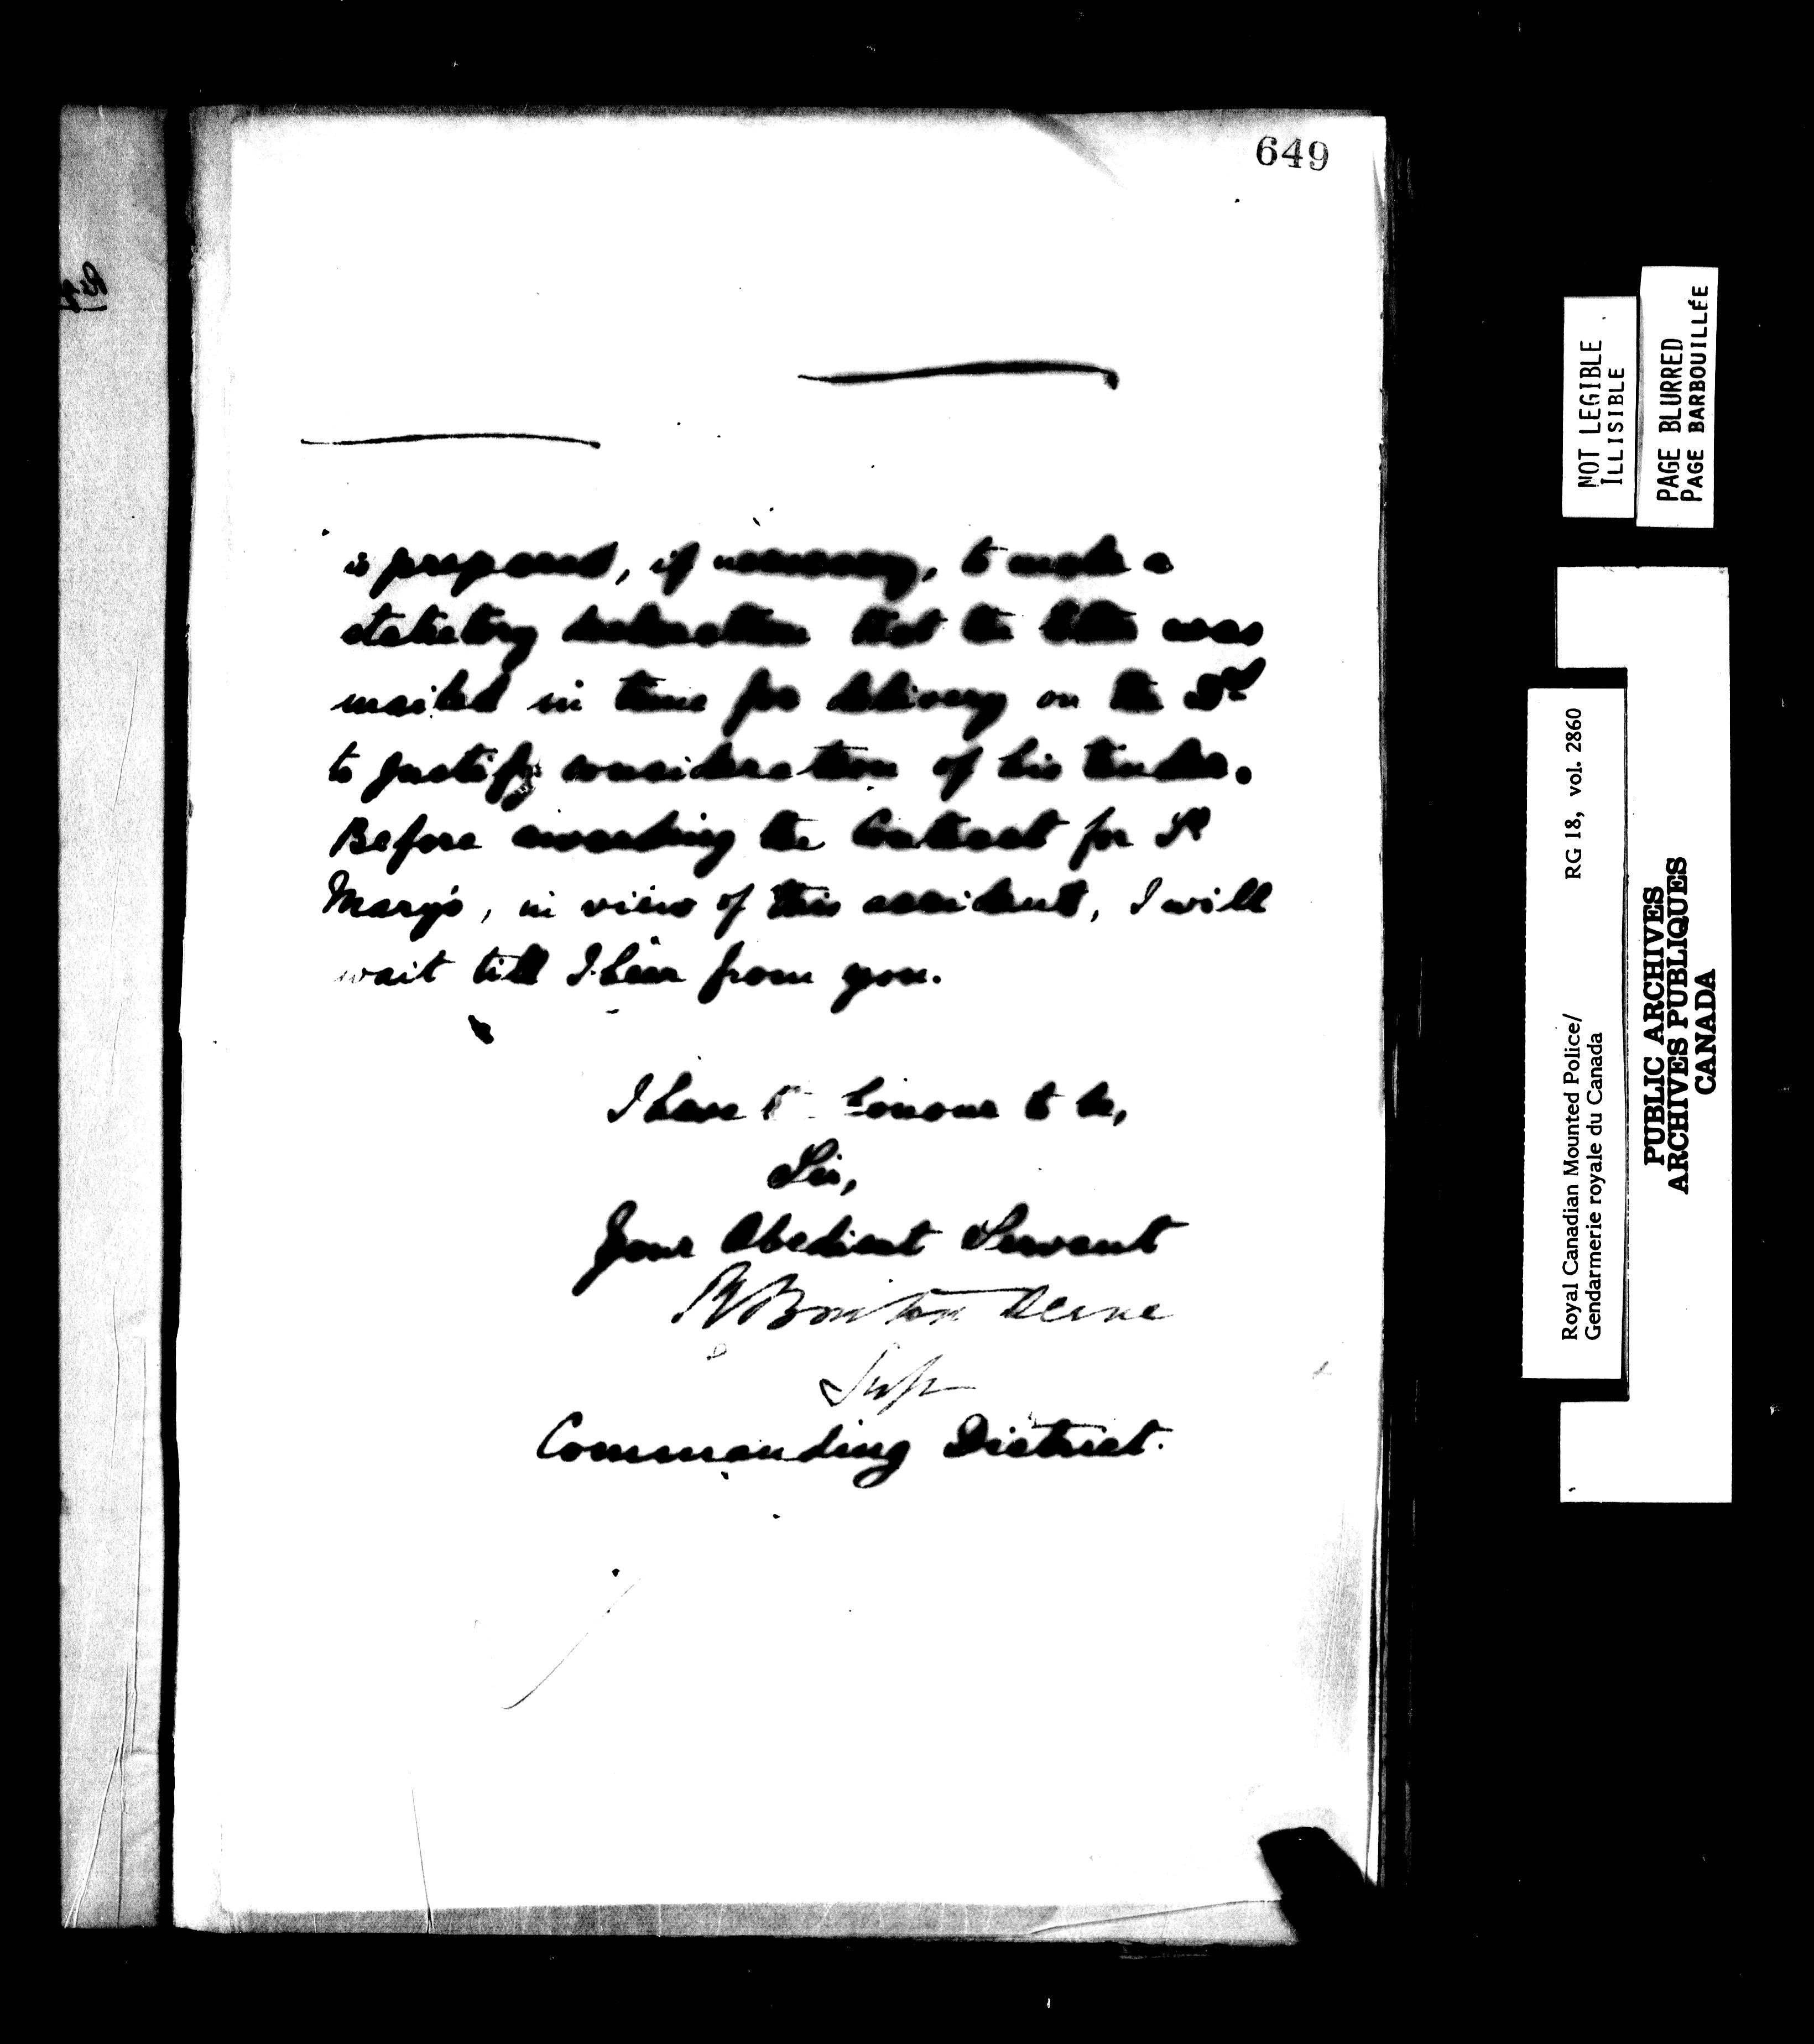 649
is prepared, if necessary, to make a
statutory declaration that the letter was
mailed in time for delivery on the
to justify consideration of his tender.
Before awarding the Contract for St
Mary's, in view of this accident, I will
wait till I hear from you.
I have the honour to be,
Sir,
Your Obedient Servant
R Burton Deane
Supt
Commanding District.
NOT LEGIBLE
ILLISIBLE
PAGE BLURRED
PAGE BARBOUILLÉE
RG 18, vol. 2860
Royal Canadian Mounted Police/
Gendarmerie royale du Canada
PUBLIC ARCHIVES
ARCHIVES PUBLIQUES
CANADA